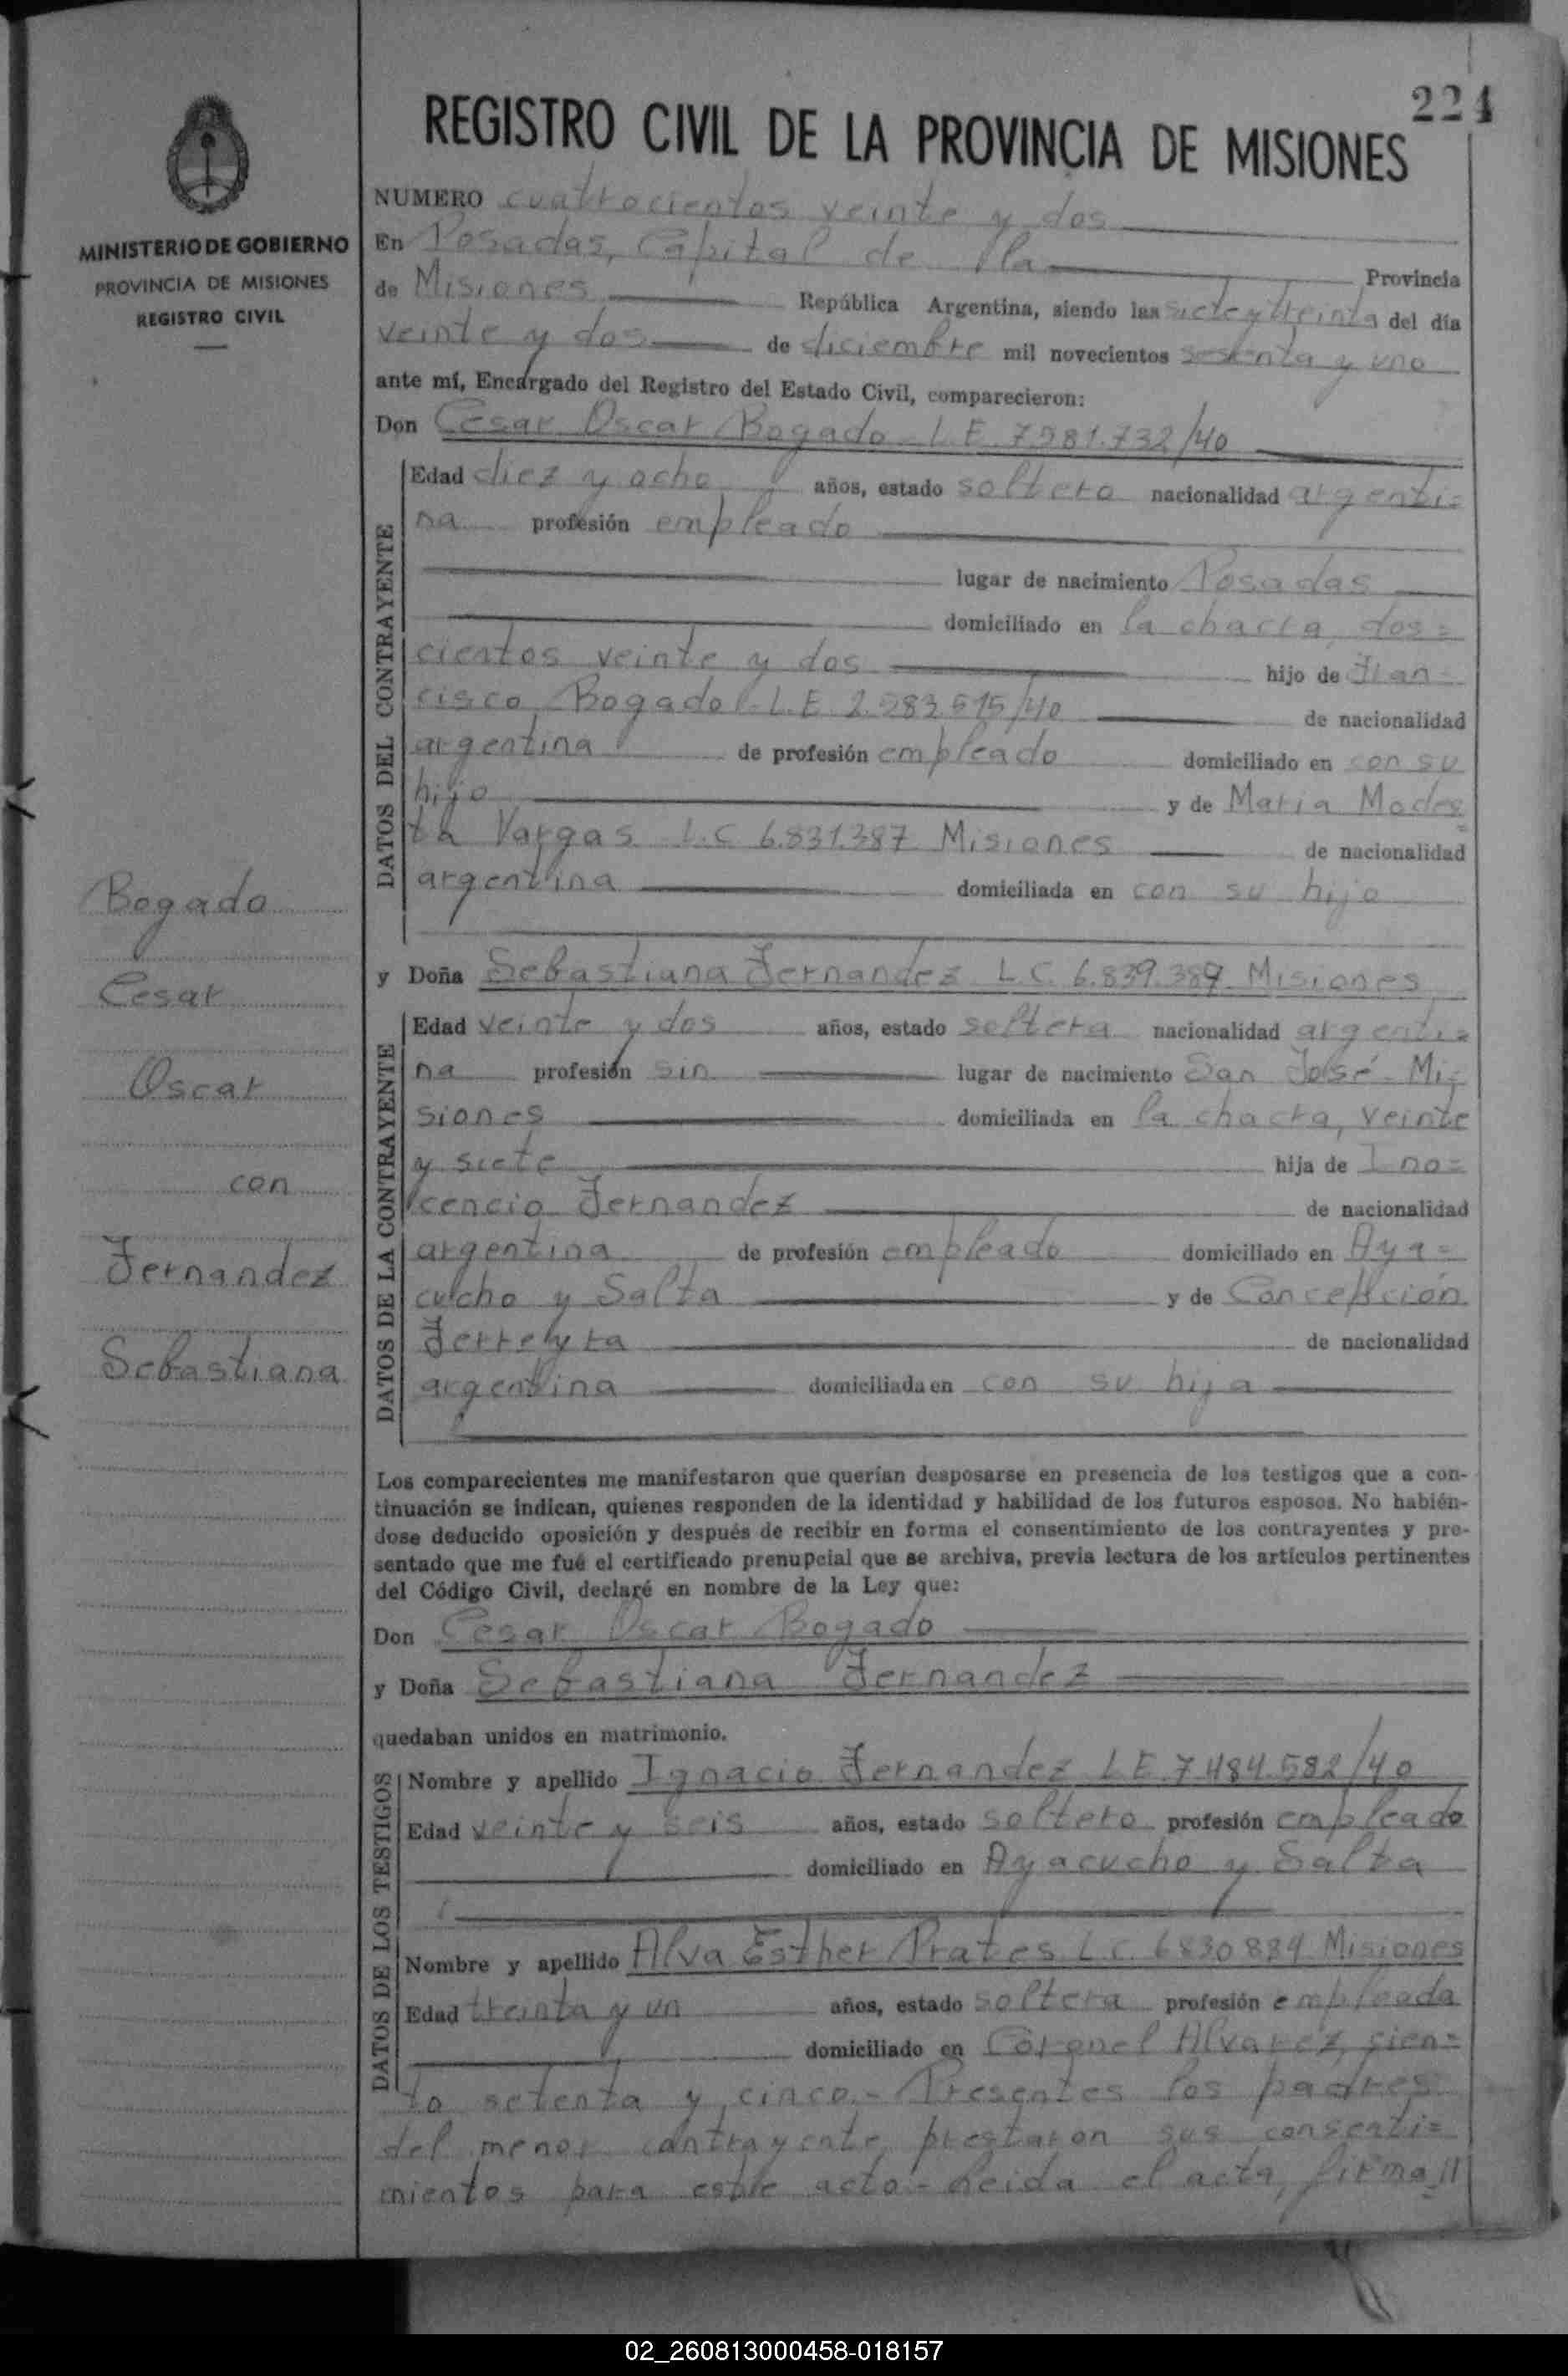 224
REGISTRO CIVIL DE LA PROVINCIA DE MISIONES
MINISTERIO DE GOBIERNO
PROVINCIA DE MISIONES
REGISTRO CIVIL
Bogado
Cesar
Oscar
con
Fernandez
Sebastiana
NUMERO cuatrocientos veinte y dos
En Posadas, Capital de la Provincia
de Misiones República Argentina, siendo las siete y treinta del día
veinte y dos de diciembre mil novecientos sesenta y uno
ante mí, Encargado del Registro del Estado Civil, comparecieron:
Don Cesar Oscar Bogado - L.E. 7.581.732/40
DATOS DEL CONTRAYENTE
Edad diez y ocho años, estado soltero nacionalidad argenti=
na profesión empleado
lugar de nacimiento Posadas
domiciliado en la chacra, dos=
cientos veinte y dos hijo de Fran=
cisco Bogado - L.E. 2.583.515/40 de nacionalidad
argentina de profesión empleado domiciliado en con su
hijo y de Maria Modes=
ta Vargas L.C 6.831.387 Misiones de nacionalidad
argentina domiciliada en con su hijo
y Doña Sebastiana Fernandez L.C. 6.839.389 Misiones
DATOS DE LA CONTRAYENTE
Edad veinte y dos años, estado soltera nacionalidad argenti=
na profesión sin lugar de nacimiento San José - Mi=
siones domiciliada en la chacra, veinte
y siete hija de Ino=
cencio Fernandez de nacionalidad
argentina de profesión empleado domiciliado en Aya=
cucho y Salta y de Concepción
Ferreyra de nacionalidad
argentina domiciliada en con su hija
Los comparecientes me manifestaron que querían desposarse en presencia de los testigos que a con-
tinuación se indican, quienes responden de la identidad y habilidad de los futuros esposos. No habién-
dose deducido oposición y después de recibir en forma el consentimiento de los contrayentes y pre-
sentado que me fué el certificado prenupcial que se archiva, previa lectura de los artículos pertinentes
del Código Civil, declaré en nombre de la Ley que:
Don Cesar Oscar Bogado
y Doña Sebastiana Fernandez
quedaban unidos en matrimonio.
DATOS DE LOS TESTIGOS
Nombre y apellido Ignacio Fernandez L.E. 7.484.582/40
Edad veinte y seis años, estado soltero profesión empleado
domiciliado en Ayacucho y Salta
Nombre y apellido Alva Esther Prates L.C. 6830884 Misiones
Edad treinta y un años, estado soltera profesión empleada
domiciliado en Coronel Alvarez, cien=
to setenta y cinco.- Presentes los padres
del menor contrayente, prestaron sus consenti=
mientos para este acto - Leida el acta, firma//
02_260813000458-018157